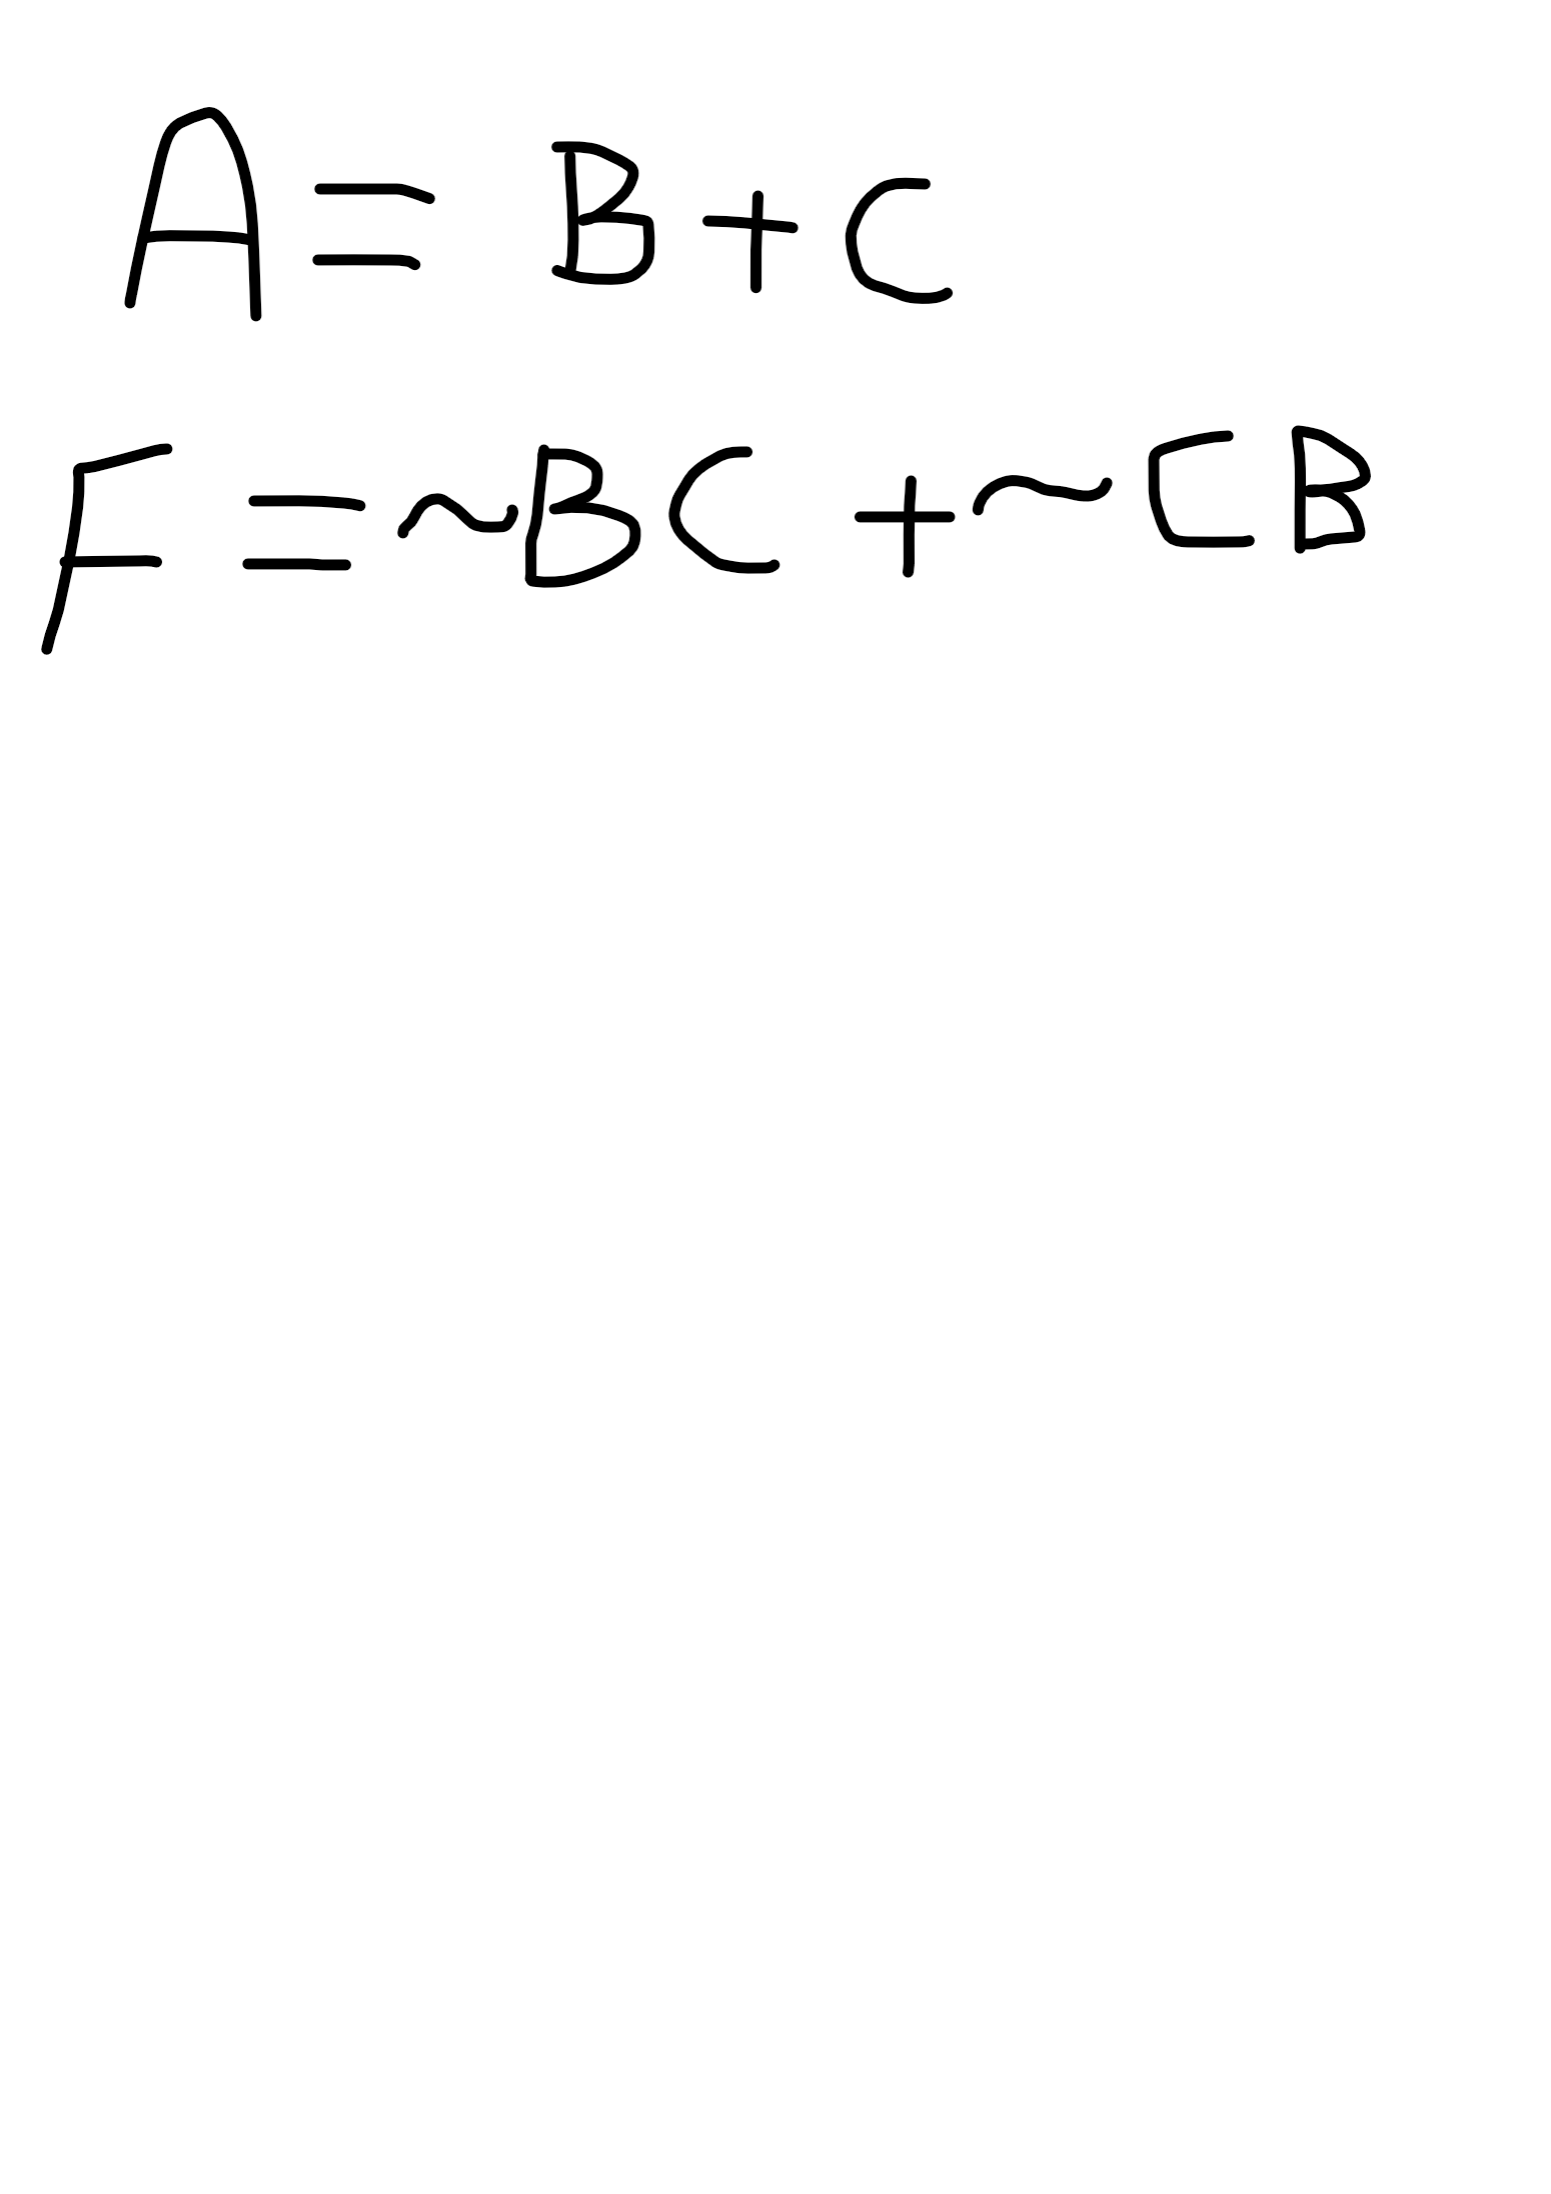 A = B + C
F = ~BC + ~CB